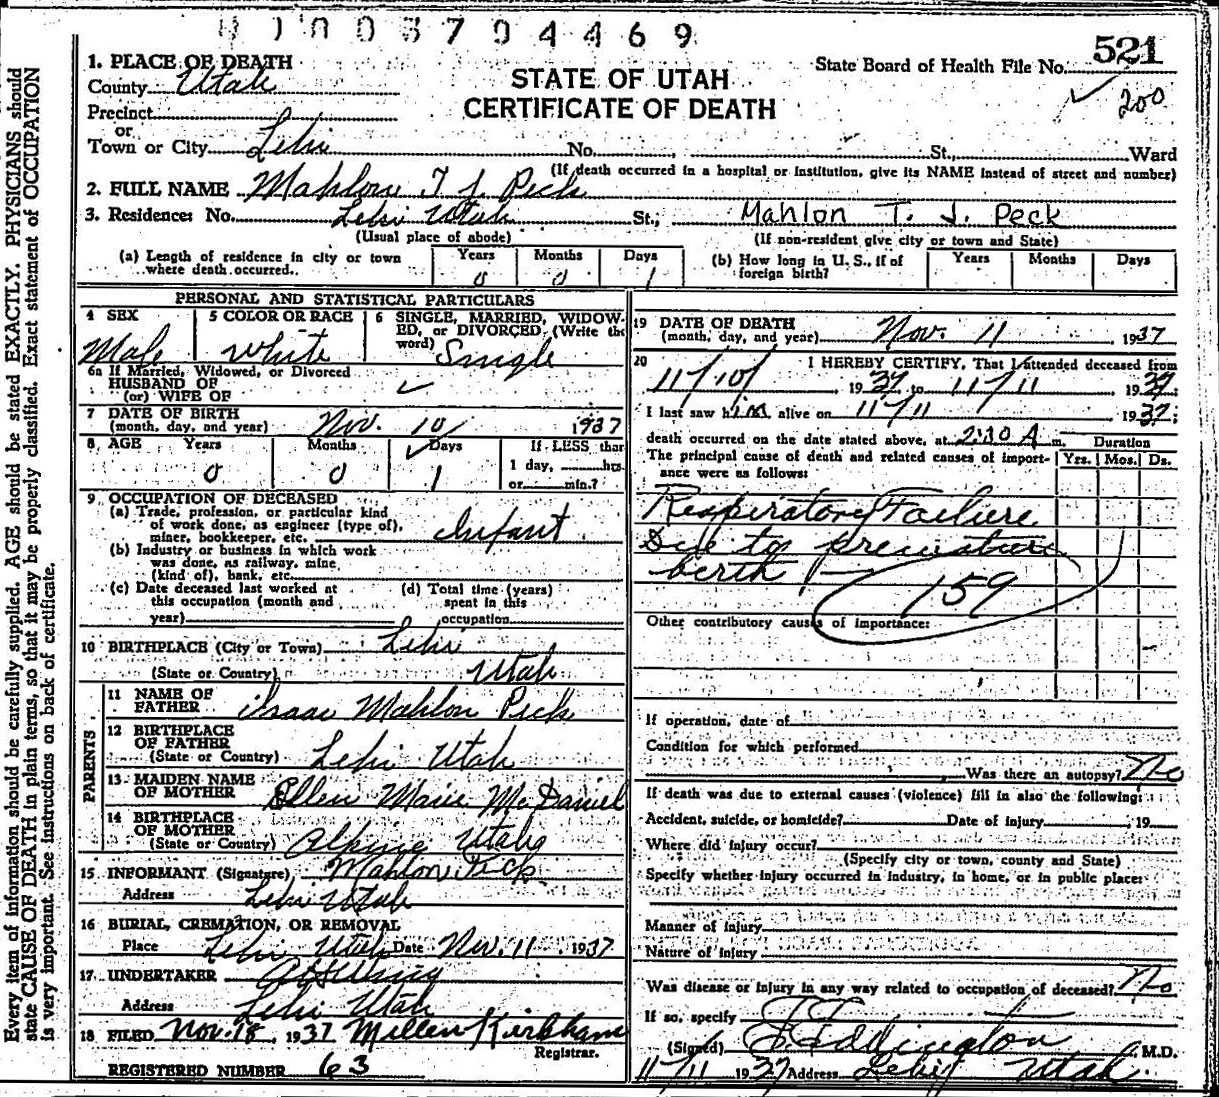 H 1 0 0 3 7 0 4 4 6 9
521
State Board of Health File No.
200
STATE OF UTAH
CERTIFICATE OF DEATH
1. PLACE OF DEATH
County Utah
Precinct
or
Town or City Lehi No. , St., Ward
(If death occurred in a hospital or institution, give its NAME instead of street and number)
2. FULL NAME Mahlon T J Peck
3. Residence: No. Lehi Utah St., Mahlon T. J. Peck
(Usual place of abode) (If non-resident give city or town and State)
(a) Length of residence in city or town where death occurred.. Years 0 Months 0 Days 1
(b) How long in U. S., if of foreign birth? Years Months Days
PERSONAL AND STATISTICAL PARTICULARS
4 SEX Male
5 COLOR OR RACE White
6 SINGLE, MARRIED, WIDOWED, or DIVORCED (Write the word) Single
6a If Married, Widowed, or Divorced
HUSBAND OF
(or) WIFE OF
7 DATE OF BIRTH
(month, day, and year) Nov. 10 1937
8 AGE Years 0 Months 0 Days 1 If LESS than
1 day, hrs.
or min.?
9 OCCUPATION OF DECEASED
(a) Trade, profession, or particular kind
of work done, as engineer (type of),
miner, bookkeeper, etc. Infant
(b) Industry or business in which work
was done, as railway, mine
(kind of), bank, etc.
(c) Date deceased last worked at
this occupation (month and
year)
(d) Total time (years)
spent in this
occupation
10 BIRTHPLACE (City or Town) Lehi
(State or Country) Utah
PARENTS
11 NAME OF
FATHER Isaac Mahlon Peck
12 BIRTHPLACE
OF FATHER
(State or Country) Lehi Utah
13 MAIDEN NAME
OF MOTHER Ellen Marie McDaniel
14 BIRTHPLACE
OF MOTHER
(State or Country) Alpine Utah
15 INFORMANT (Signature) Mahlon Peck
Address Lehi Utah
16 BURIAL, CREMATION, OR REMOVAL
Place Lehi Utah Date Nov. 11 1937
17 UNDERTAKER
Address Lehi Utah
18 FILED Nov. 18, 1937 Millen Kirkham
Registrar.
REGISTERED NUMBER 63
19 DATE OF DEATH
(month, day, and year) Nov. 11 1937
20 I HEREBY CERTIFY, That I attended deceased from
11/10/ 1937 to 11/11 1937:
I last saw him alive on 11/11 1937:
death occurred on the date stated above, at 2:30 A m. Duration
The principal cause of death and related causes of importance were as follows: Yrs. Mos. Ds.
Respiratory Failure
due to premature
birth
159
Other contributory causes of importance:
If operation, date of
Condition for which performed
Was there an autopsy? No
If death was due to external causes (violence) fill in also the following:
Accident, suicide, or homicide? Date of injury , 19
Where did injury occur?
(Specify city or town, county and State)
Specify whether injury occurred in industry, in home, or in public place:
Manner of injury
Nature of injury
Was disease or injury in any way related to occupation of deceased? No
If so, specify
(Signed) Eddington M.D.
11/11 1937 Address Lehi Utah
Every item of information should be carefully supplied. AGE should be stated EXACTLY. PHYSICIANS should
state CAUSE OF DEATH in plain terms, so that it may be properly classified. Exact statement of OCCUPATION
is very important. See instructions on back of certificate.